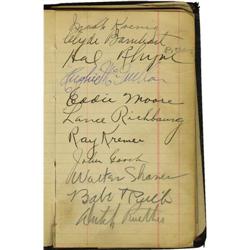 Clyde Barnhart
Hal Rhyne
Eddie Moore
Lance Richbourg
Ray Kremer
John Gooch
Walter Shaner
Babe Ruth
Dutch Ruether